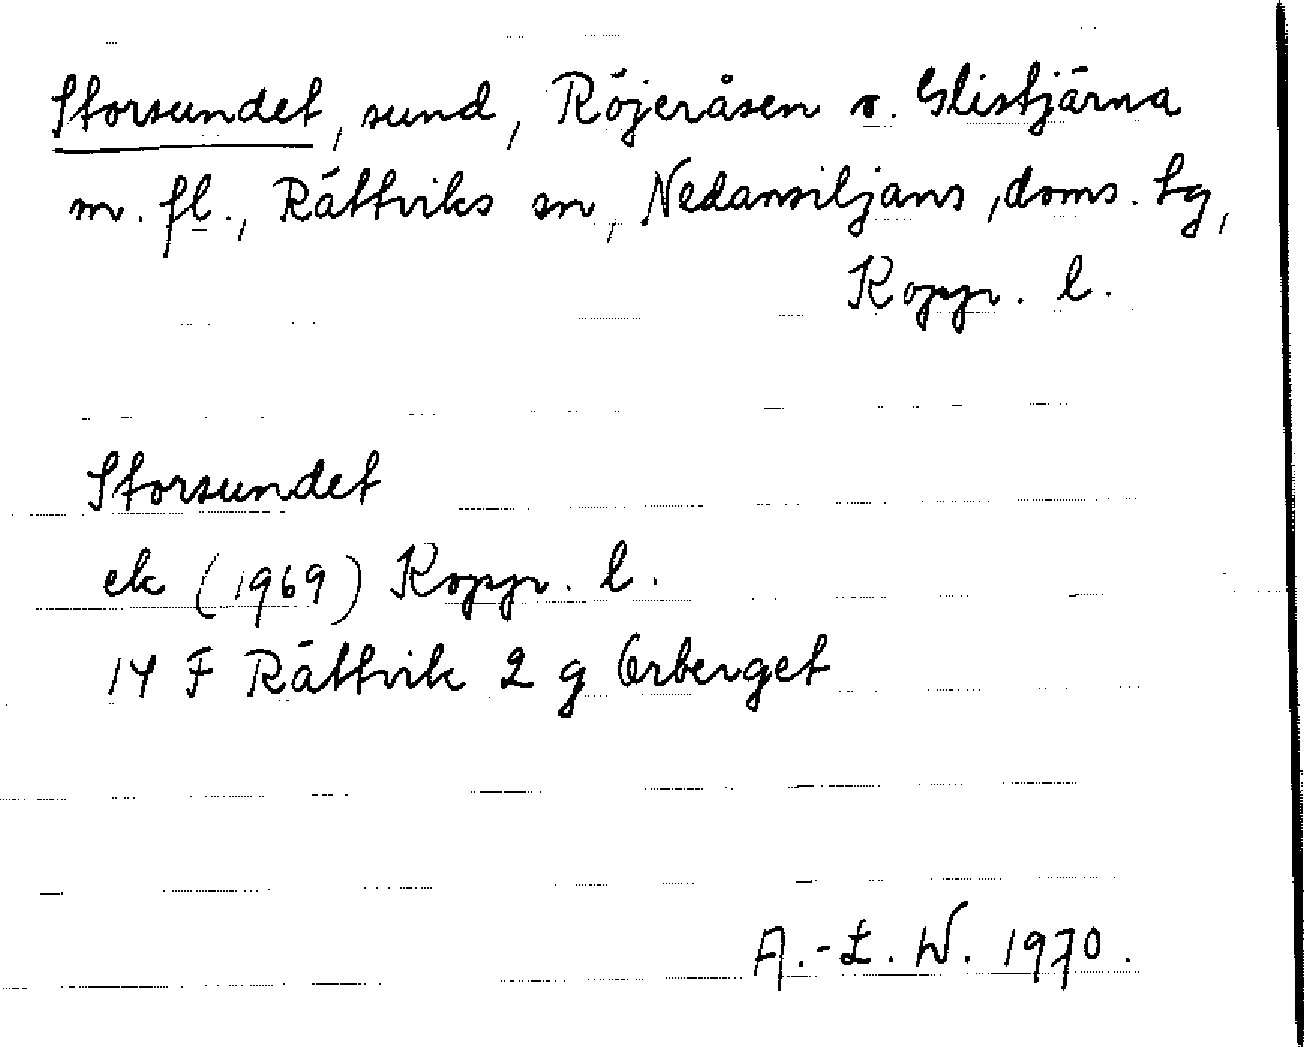 Storsundet, sund, Röjeråsen o. Glistjärna
m. fl., Rättviks sn, Nedansiljans, doms. tg,
Kopp. l.
Storsundet
ek (1969) Kopp. l.
14 F Rättvik 2 g Orberget
A.-L. W. 1970.